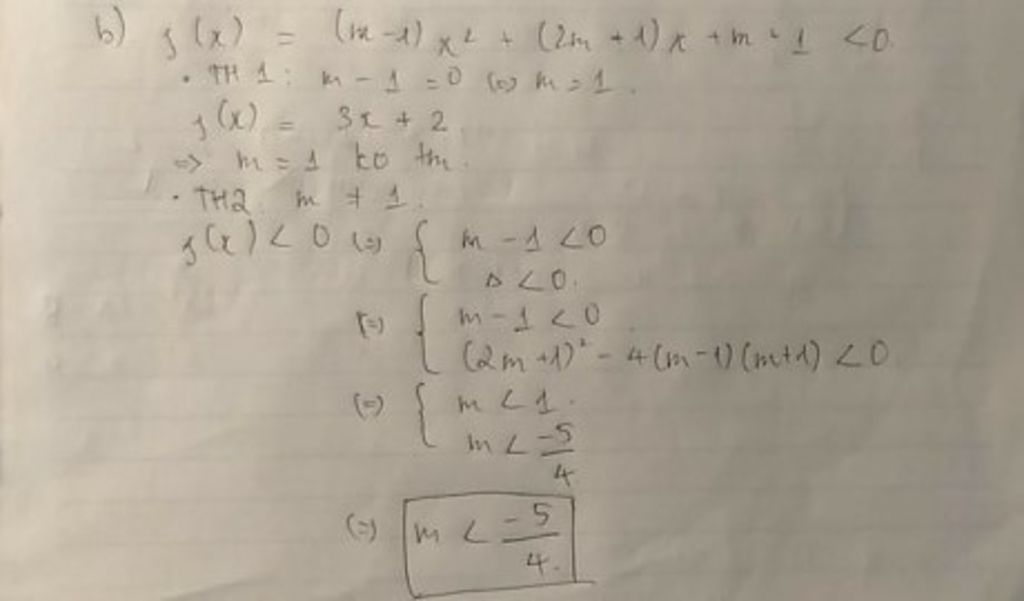 b) f(x) = (m-1)x² + (2m+1)x + m+1 <0.
• TH1: m-1=0 (=) m=1.
f(x) = 3x+2.
=> m=1 ko tm.
• TH2. m ≠ 1.
f(x)<0 (=) { m-1<0
Δ<0.
(=) { m-1<0
(2m+1)² - 4(m-1)(m+1)<0
(=) { m<1.
m< -5/4
(=) m< -5/4.